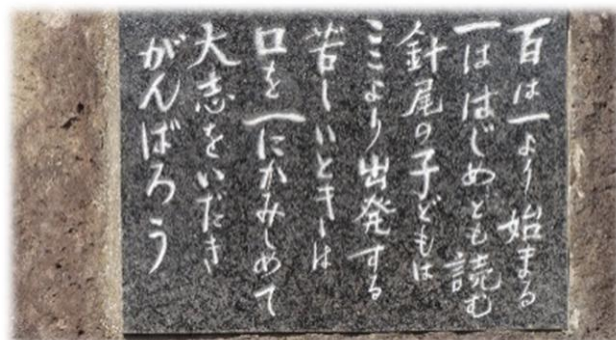 百は一より始まる
一ははじめとも読む
針尾の子どもは
ここより出発する
苦しいときは
口を一にかみしめて
大志をいだき
がんばろう